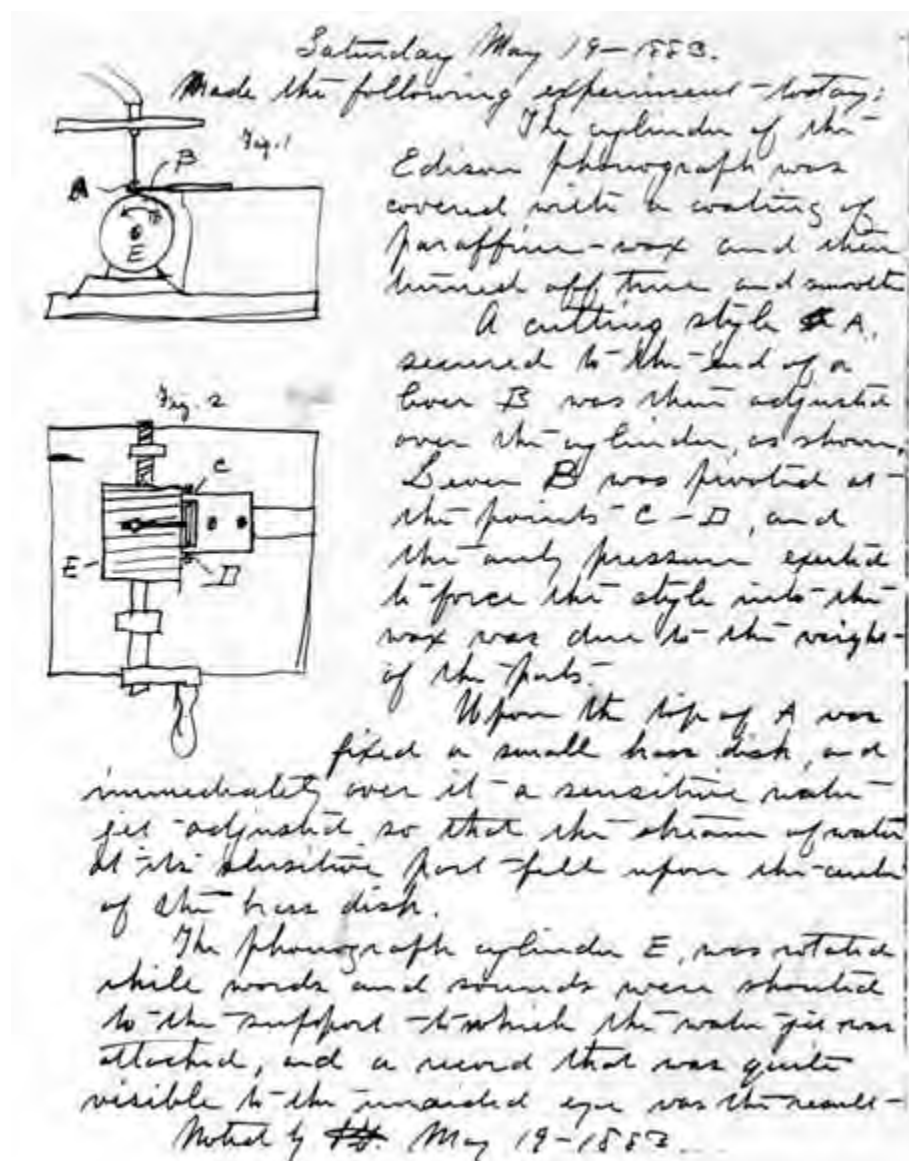 Saturday May 19-1883.
Made the following experiment to-day:
Fig. 1
The cylinder of the
A B
Edison phonograph was
covered with a coating of
E
paraffine-wax and then
turned off true and smooth
A cutting style A,
secured to the end of a
Fig. 2
lever B was then adjusted
over the cylinder, as shown.
C
Lever B was pivoted at
the points C-D, and
E D
the only pressure exerted
to force the style into the
wax was due to the weight
of the parts.
Upon the top of A was
fixed a small brass disk, and
immediately over it a sensitive water
jet adjusted so that the stream of water
at its sensitive part fell upon the center
of the brass disk.
The phonograph cylinder E, was rotated
while words and sounds were shouted
to the support to which the water jet was
attached, and a record that was quite
visible to the unaided eye was the result
Noted by May 19-1883.